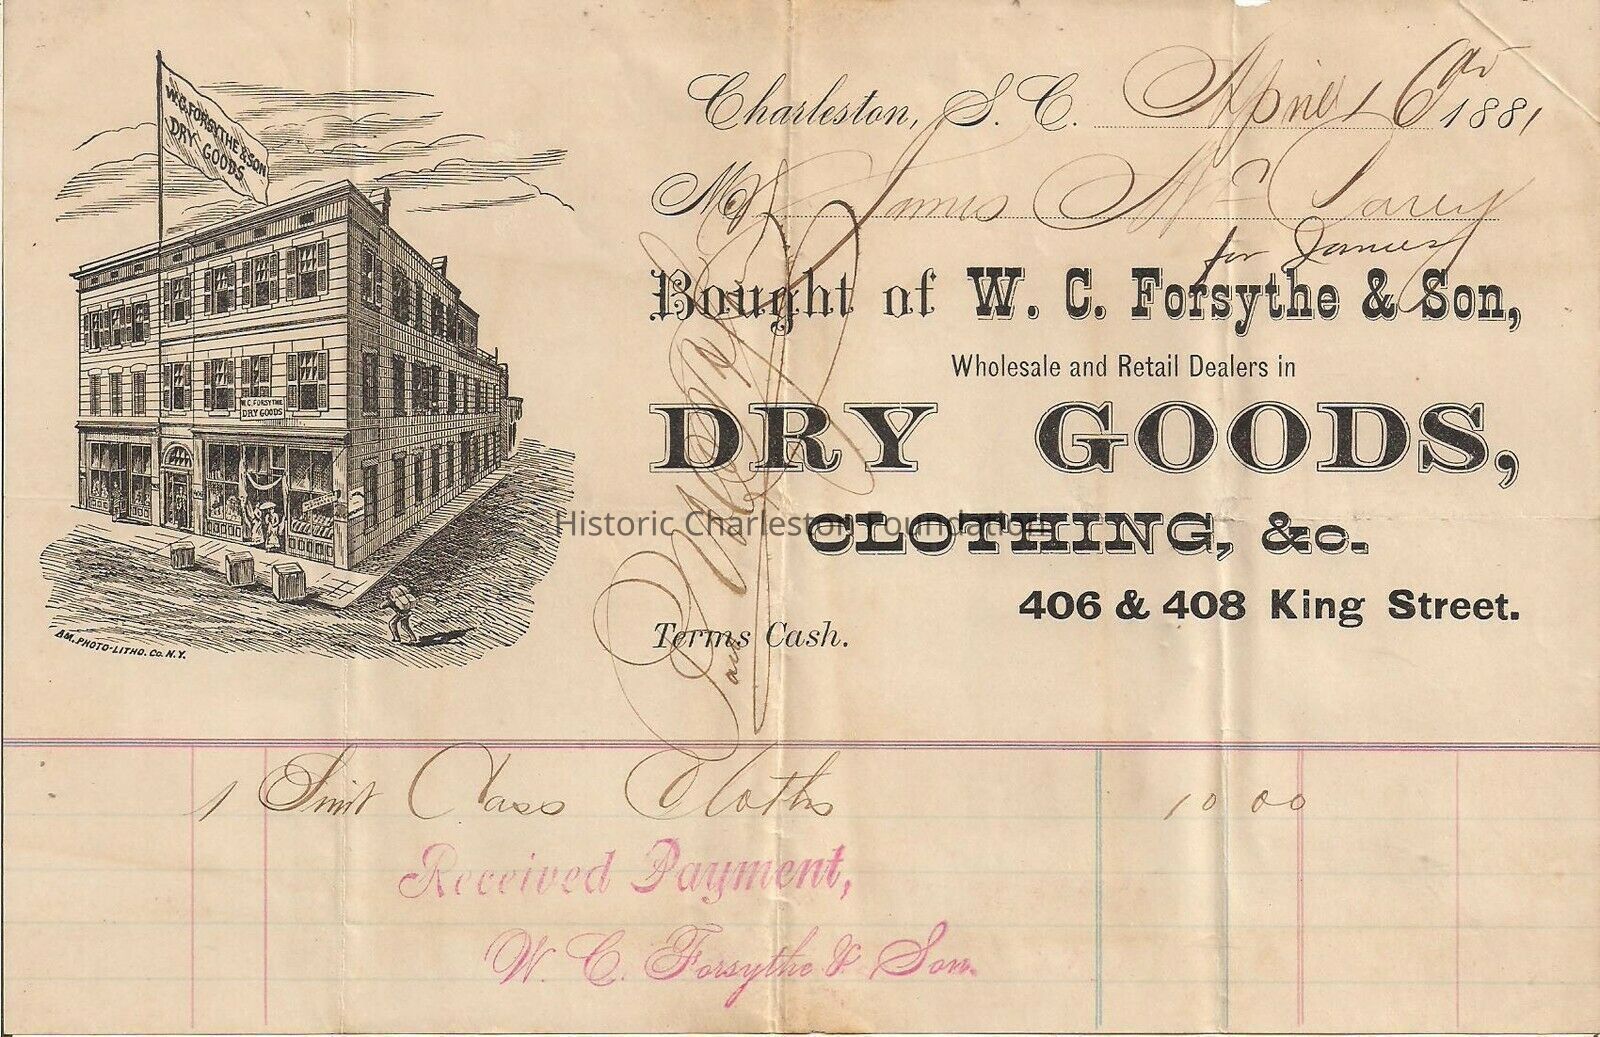 Charleston, S. C. April 16th 1881
Mr James Mc
for James
Bought of W. C. Forsythe & Son,
Wholesale and Retail Dealers in
DRY GOODS,
CLOTHING, &c.
406 & 408 King Street.
Terms Cash.
W.C. FORSYTHE & SON
DRY GOODS
W.C. FORSYTHE
DRY GOODS
AM. PHOTO-LITHO. CO. N.Y.
Historic Charleston Foundation
1 Suit Cass Cloths 10 00
Received Payment,
W. C. Forsythe & Son.